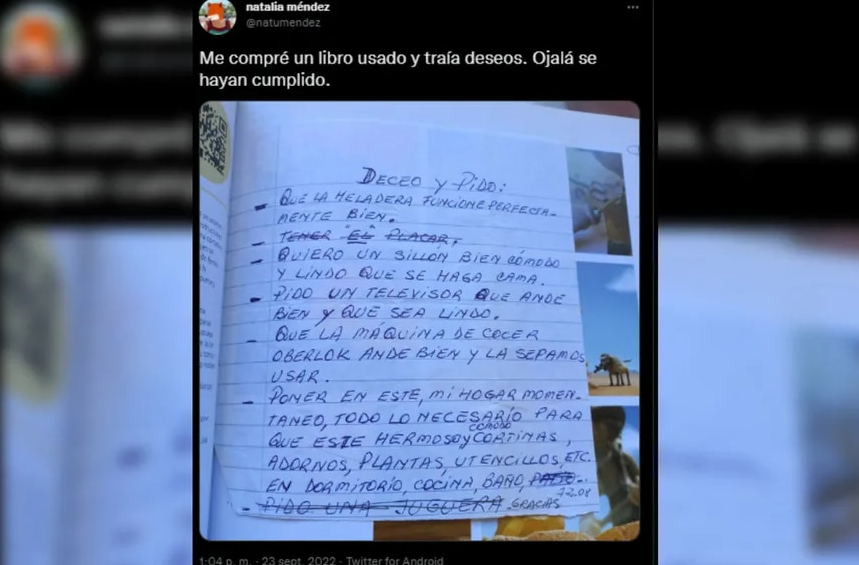 natalia méndez
@natumendez
Me compré un libro usado y traía deseos. Ojalá se
hayan cumplido.
DECEO Y PIDO:
- QUE LA HELADERA FUNCIONE PERFECTA-
MENTE BIEN.
- TENER "EL" PLACAR.
- QUIERO UN SILLON BIEN CÓMODO
Y LINDO QUE SE HAGA CAMA.
- PIDO UN TELEVISOR QUE ANDE
BIEN Y QUE SEA LINDO.
- QUE LA MÁQUINA DE COCER
OBERLOK ANDE BIEN Y LA SEPAMOS
USAR.
- PONER EN ESTE, MI HOGAR MOMEN-
TANEO, TODO LO NECESARIO PARA
QUE ESTE HERMOSO y CÓMODO CORTINAS,
ADORNOS, PLANTAS, UTENCILLOS, ETC.
EN DORMITORIO, COCINA, BAÑO,
- PIDO UNA JUGUERA. GRACIAS
1:04 p. m. · 23 sept. 2022 · Twitter for Android